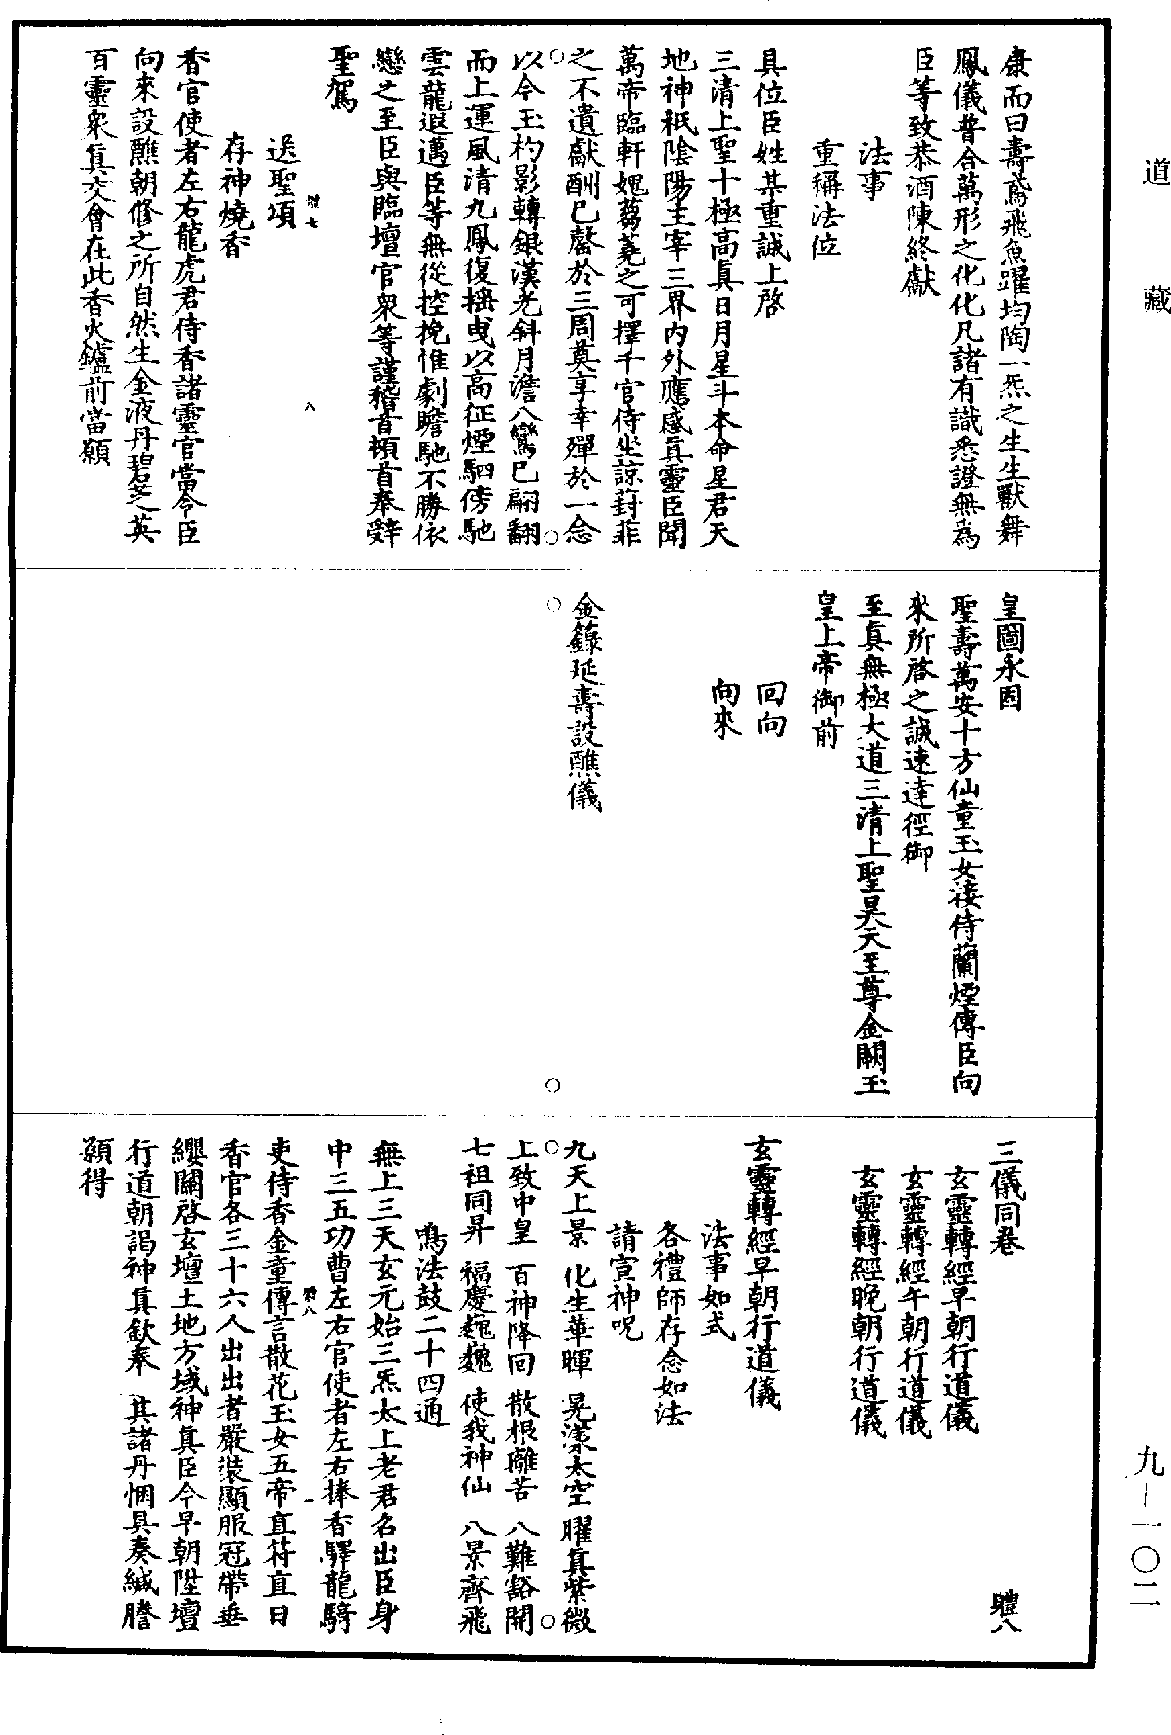 道藏
康而曰壽鳶飛魚躍均陶一炁之生生獸舞
鳳儀普含萬形之化化凡諸有識悉證無為
臣等致恭酒陳終獻
法事
重稱法位
具位臣姓某重誠上啓
三清上聖十極高真日月星斗本命星君天
地神祇陰陽主宰三界內外應感真靈臣聞
萬帝臨軒媿蒭蕘之可擇千官侍坐諒葑菲
之不遺獻酬已罄於三周奠享幸殫於一念
以今玉杓影轉銀漢光斜月澹八鸞已翩翻
而上運風清九鳳復摇曳以高征煙駟傍馳
雲龍遐邁臣等無從控挽惟劇瞻馳不勝依
戀之至臣與臨壇官衆等謹稽首頓首奉辭
聖駕
體七
送聖頌
八
存神燒香
香官使者左右龍虎君侍香諸靈官當令臣
向來設醮朝修之所自然生金液丹碧芝英
百靈衆真交會在此香火鑪前當願
皇圖永固
聖壽萬安十方仙童玉女接侍蘭煙傳臣向
來所啓之誠速達徑御
至真無極大道三清上聖昊天至尊金闕玉
皇上帝御前
回向
向來
金籙延壽設醮儀
三儀同卷
體八
玄靈轉經早朝行道儀
玄靈轉經午朝行道儀
玄靈轉經晚朝行道儀
玄靈轉經早朝行道儀
法事如式
各禮師存念如法
請宣神呪
九天上景 化生華暉 晃漾太空 曜真紫微
上致中皇 百神降回 散根離苦 八難豁開
七祖同昇 福慶巍巍 使我神仙 八景齊飛
鳴法鼓二十四通
無上三天玄元始三炁太上老君名出臣身
中三五功曹左右官使者左右捧香驛龍騎
體八
一
吏侍香金童傳言散花玉女五帝直符直日
香官各三十六人出出者嚴裝顯服冠帶垂
纓關啓玄壇土地方域神真臣今早朝陞壇
行道朝謁神真歆奉 其諸丹悃具奏緘謄
願得
九－一〇二